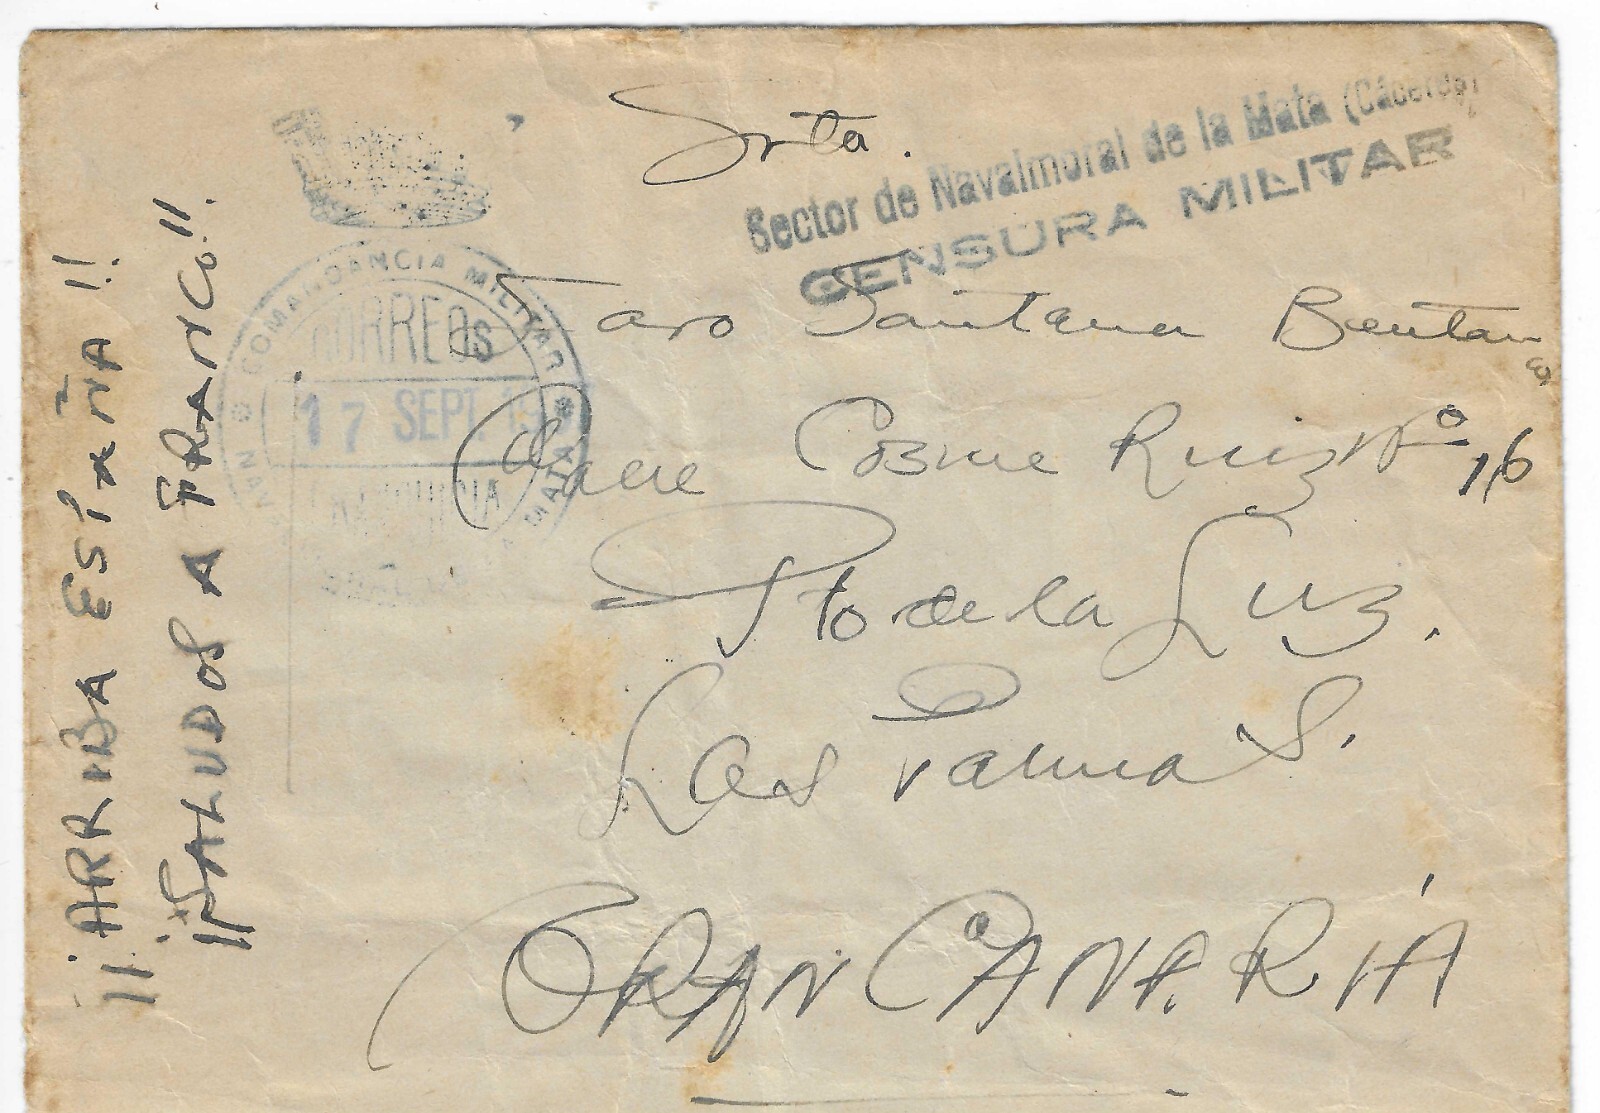 Srta.
Sector de Navalmoral de la Mata (Cáceres)
CENSURA MILITAR
COMANDANCIA MILITAR
CORREOS
17 SEPT. 19
FRANQUICIA
NAV MATA
Faro Santana Bentan
Calle Cosme Ruiz Nº 16
Pto de la Luz.
Las Palmas.
GRAN CANARIA
¡¡ARRIBA ESPAÑA!!
¡¡SALUDOS A FRANCO!!